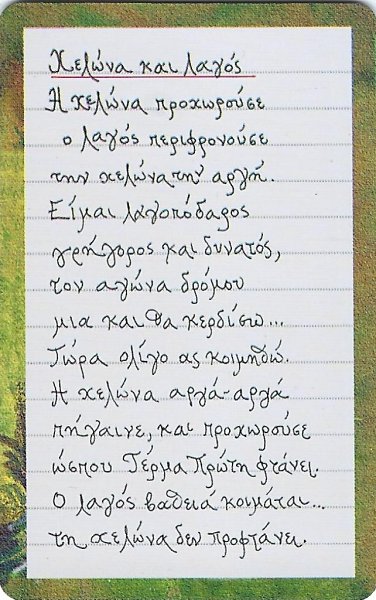 Χελώνα και λαγός
Η χελώνα προχωρούσε
ο λαγός περιφρονούσε
την χελώνα την αργή.
Είμαι λαγοπόδαρος
γρήγορος και δυνατός,
τον αγώνα δρόμου
μια και θα κερδίσω...
Τώρα ολίγο ας κοιμηθώ.
Η χελώνα αργά-αργά
πήγαινε, και προχωρούσε
ώσπου Τέρμα Πρώτη φτάνει.
Ο λαγός βαθειά κοιμάται...
τη χελώνα δεν προφτάνει.